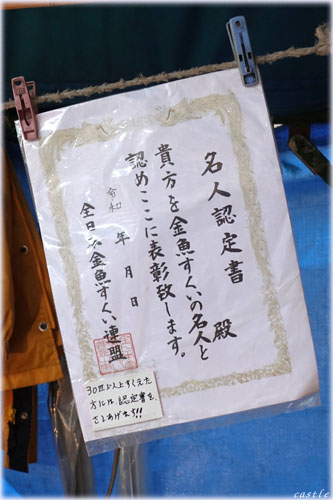 名人認定書
殿
貴方を金魚すくいの名人と
認めここに表彰致します。
令和 年 月 日
全日本金魚すくい連盟
30匹以上すくえた
方には、認定書を、
さしあげます!!!
castle